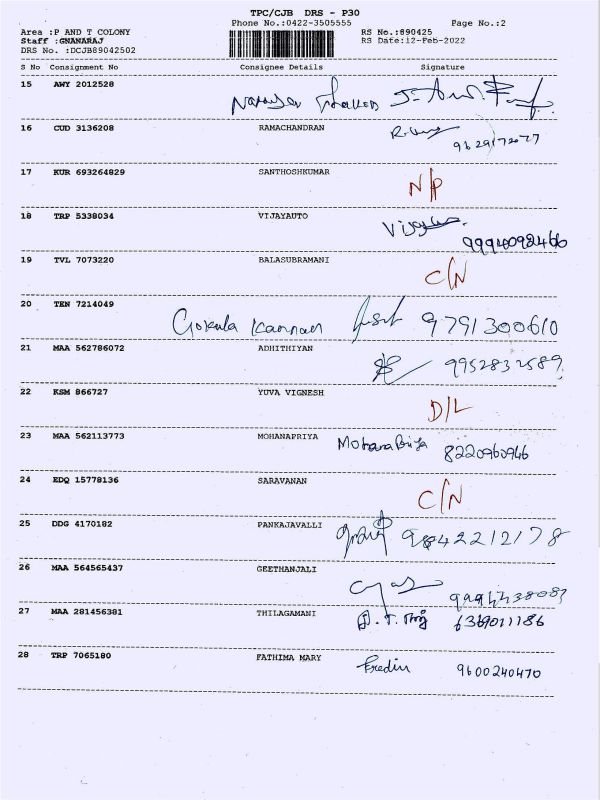 TPC/CJB DRS - P30
Phone No.:0422-3505555 Page No.:2
Area :P AND T COLONY RS No.:890425
Staff :GNANARAJ RS Date:12-Feb-2022
DRS No. :DCJB89042502
S No Consignment No Consignee Details Signature
15 AWY 2012528
16 CUD 3136208 RAMACHANDRAN
17 KUR 693264829 SANTHOSHKUMAR
N/P
18 TRP 5338034 VIJAYAUTO
9994092466
19 TVL 7073220 BALASUBRAMANI
C/N
20 TEN 7214049
Gokula Kannan 9791300610
21 MAA 562786072 ADHITHIYAN
9952832589
22 KSM 866727 YUVA VIGNESH
D/L
23 MAA 562113773 MOHANAPRIYA
Mohana Priya 8220960946
24 EDQ 15778136 SARAVANAN
C/N
25 DDG 4170182 PANKAJAVALLI
9842212178
26 MAA 564565437 GEETHANJALI
27 MAA 281456381 THILAGAMANI
6369011186
28 TRP 7065180 FATHIMA MARY
9600240470